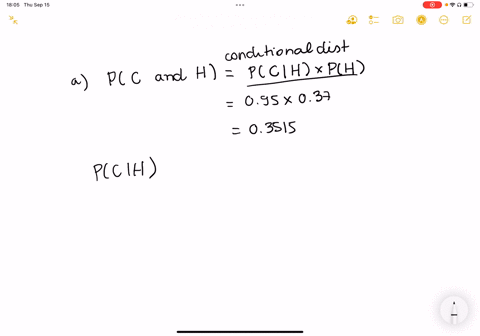 18:05 Thu Sep 15
conditional dist
a) P(C and H) = P(C|H) × P(H)
= 0.95 × 0.37
= 0.3515
P(C|H)